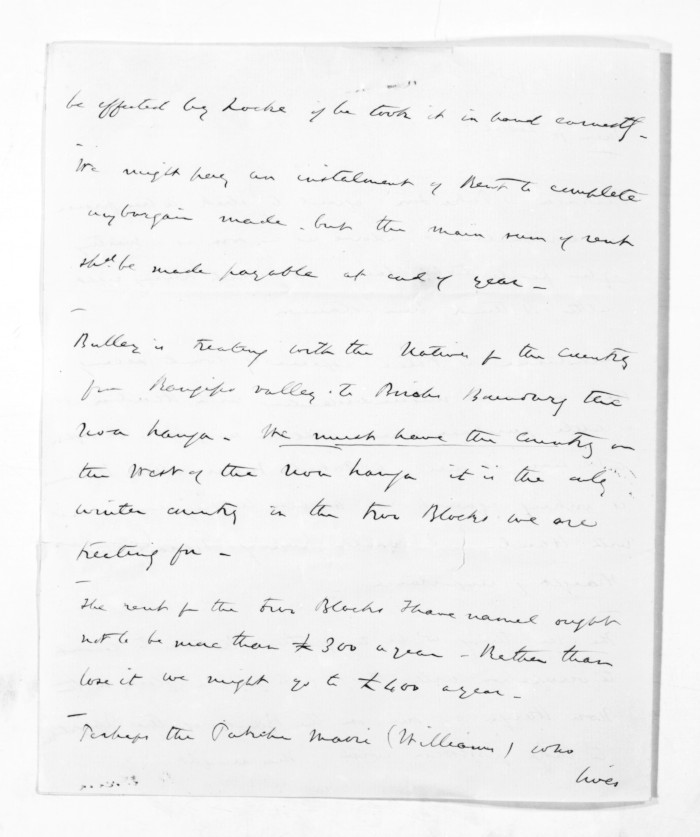 be effected by Locke if he took it in hand earnestly -
We might pay an instalment of Rent to complete
any bargain made - but the main sum of rent
shd. be made payable at end of year -
is treating with the Natives for the Country
from Rangipo valley to Birchs Boundary the
- We must have the Country on
the West of the it is the only
winter country in the two Blocks we are
treating for -
The rent for the two Blocks I have named ought
not to be more than £300 a year - Rather than
lose it we might go to £400 a year -
Perhaps the Maori (Williams) who
lives